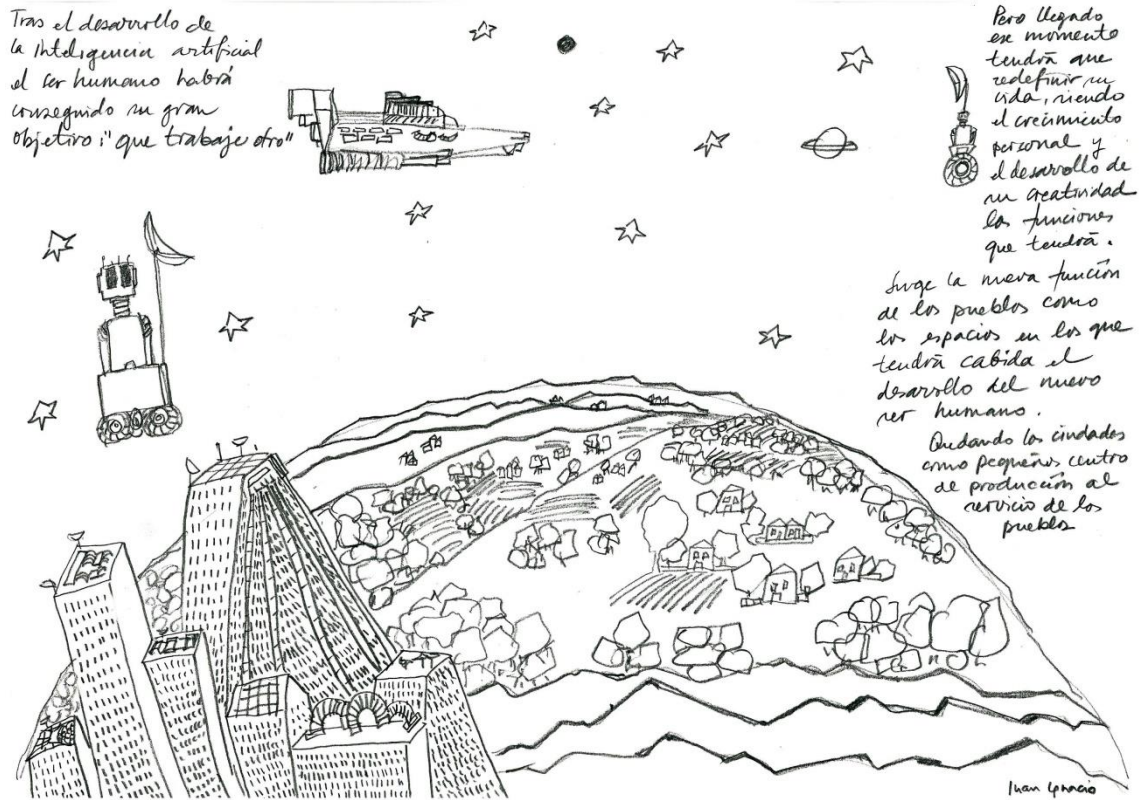 Tras el desarrollo de
la inteligencia artificial
el ser humano habrá
conseguido su gran
objetivo: "que trabaje otro"
Pero llegado
ese momento
tendrá que
redefinir su
vida, siendo
el crecimiento
personal y
el desarrollo de
su creatividad
las funciones
que tendrá.
Surge la nueva función
de los pueblos como
los espacios en los que
tendrá cabida el
desarrollo del nuevo
ser humano.
Quedando las ciudades
como pequeños centro
de producción al
servicio de los
pueblos
Juan Ignacio